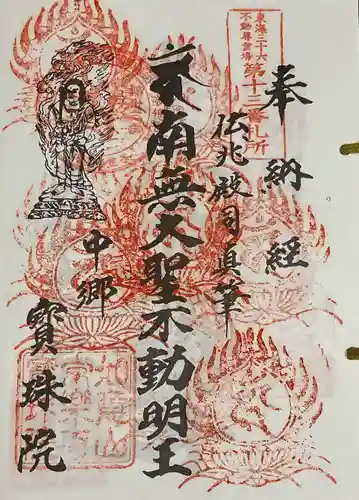 東海三十六
不動尊霊場
第十三番札所
奉納経
伝兆殿司眞筆
南無大聖不動明王
中郷
寶珠院